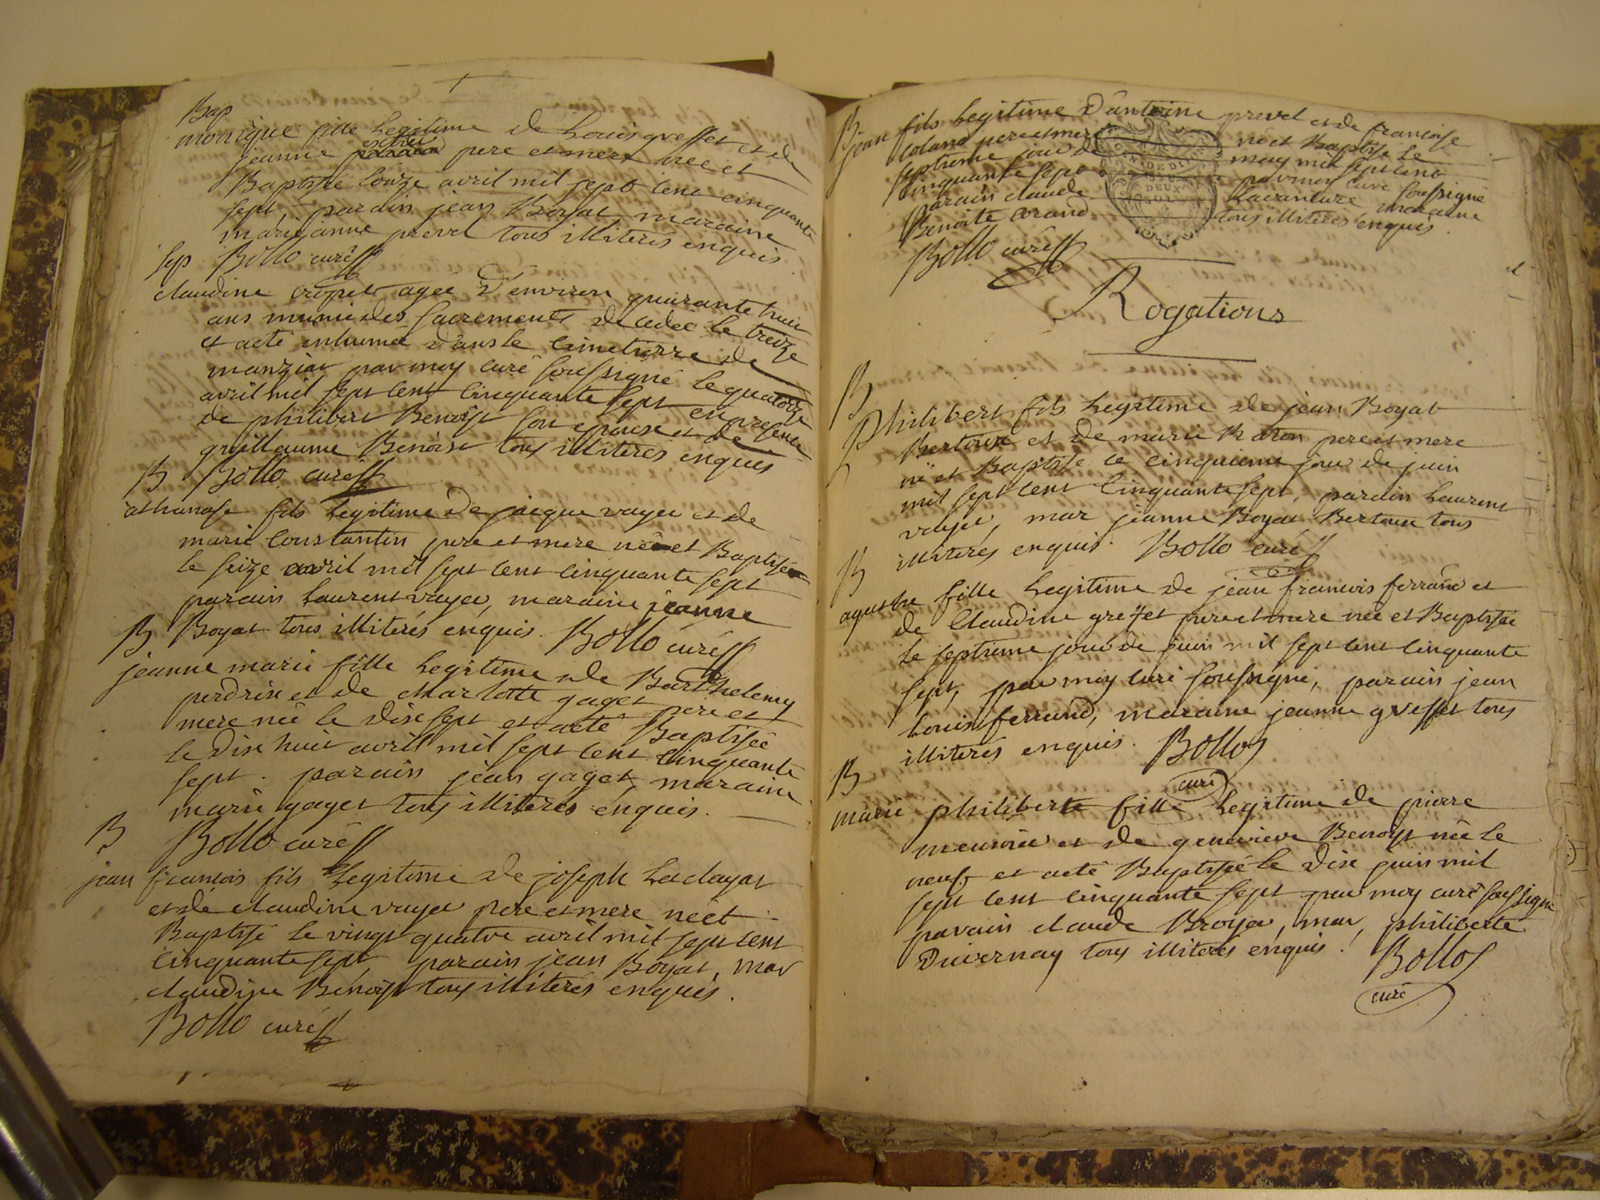 Bap
monique fille legitime de Louis greffet et de
jeanne pere et mere née et
Baptisée avril mil sept cent cinquante
sept, parain jean Boyat, maraine
marianne prevel tous illiterés enquis.
sep Bollo curé
claudine agée d'environ quarante huit
ans munie des sacrements decedée le treize
et a eté inhumé dans le cimetierre de
manziat par moy curé soussigné le quatorze
avril mil sept cent cinquante sept en presence
de philibert Benoist son epoux et de
guillaume Benoist tous illiterés enquis
B Bollo curé
athanase fils legitime de jacque vayer et de
marie Constantin pere et mere né et Baptisé
le seize avril mil sept cent cinquante sept
parain Laurent vayer, maraine jeanne
B Boyat tous illiterés enquis. Bollo curé
jeanne marie fille legitime de Barthelemy
perdrix et de charlotte gaget pere et
mere née le dix sept et a eté Baptisée
le dix huit avril mil sept cent cinquante
sept. parain jean gaget, maraine
marie gaget tous illiterés enquis.
B Bollo curé
jean francois fils legitime de joseph
et de claudine vayer pere et mere né et
Baptisé le vingt quatre avril mil sept cent
cinquante sept parain jean Boyat, mar
claudine Benoist tous illiterés enquis.
Bollo curé
B
jean fils legitime d'antoine prevel et de francoise
pere et mere né et Baptisé le
septieme jour de may mil sept cent
cinquante sept par moy curé soussigné
parain claude maraine
Benoite tous illiterés enquis.
Bollo curé
Rogations
B
Philibert fils legitime de jean Boyat
Bertoux et de marie pere et mere
né et Baptisé le cinquieme jour de juin
mil sept cent cinquante sept, parain Laurent
vayer, mar jeanne Boyat Bertoux tous
B illiterés enquis. Bollo curé
fille legitime de jean francois ferrand et
de Claudine greffet pere et mere née et Baptisée
le septieme jour de juin mil sept cent cinquante
sept, par moy curé soussigné, parain jean
Louis ferrand, maraine jeanne greffet tous
illiterés enquis. Bollo
B curé
marie philiberte fille legitime de pierre
et de genevieve Benoist née le
neuf et a eté Baptisée le dix juin mil
sept cent cinquante sept par moy curé soussigné
parain claude Broyer, mar, philiberte
Duvernay tous illiterés enquis. Bollo
curé